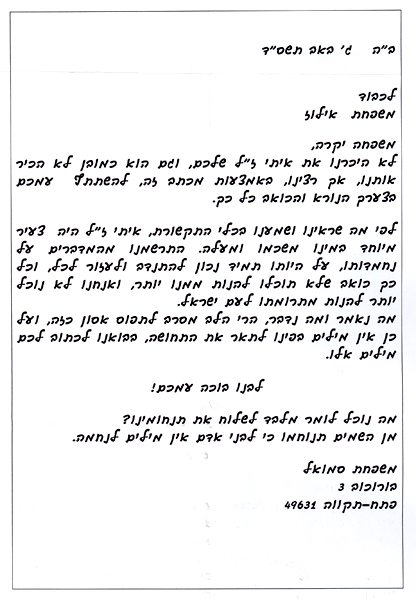 ב"ה   ג' באב תשס"ד
לכבוד
משפחת אילוז
משפחה יקרה,
לא היכרנו את איתי ז"ל שלכם, וגם הוא כמובן לא הכיר
אותנו, אך רצינו, באמצעות מכתב זה, להשתתף עמכם
בצערך הנורא והכואב כל כך.
לפי מה שראינו ושמענו בכלי התקשורת, איתי ז"ל היה צעיר
מיוחד במינו משכמו ומעלה. התרשמנו מהמדברים על
נחמדותו, על היותו תמיד נכון להתנדב ולעזור לכל, וכל
כך כואב שלא תוכלו להנות ממנו יותר, ואנחנו לא נוכל
יותר להנות מתרומתו לעם ישראל.
מה נאמר ומה נדבר, הרי הלב מסרב לתפוס אסון כזה, ועל
כן אין מילים בפינו לתאר את התחושה, בבואנו לכתוב לכם
מילים אלו.
לבנו בוכה עמכם!
מה נוכל לומר מלבד לשלוח את תנחומינו?
מן השמים תנוחמו כי לבני אדם אין מילים לנחמה.
משפחת סמואל
בורוכוב 3
פתח-תקווה 49631